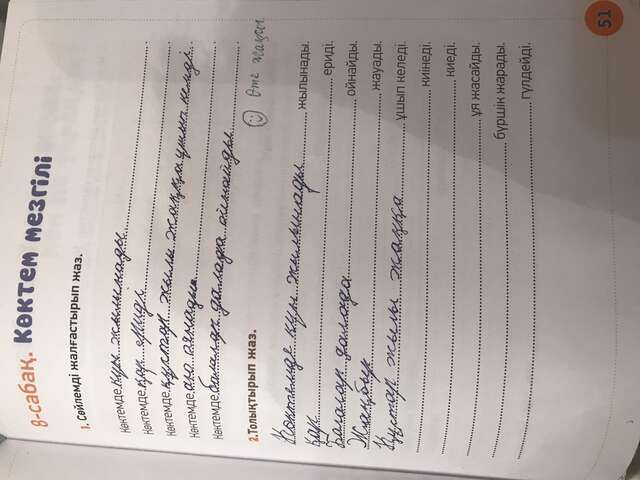 8-сабақ. Көктем мезгілі
1. Сөйлемді жалғастырып жаз.
Көктемде күн жылынады
Көктемде қар ериді
Көктемде құстар жылы жаққа ұшып келді
Көктемде
Көктемде балалар далада ойнайды
2. Толықтырып жаз.
Өте жақсы
Көктемде күн жылынады жылынады.
Қар ериді.
Балалар далада ойнайды.
Жаңбыр жауады.
Құстар жылы жаққа ұшып келеді.
киінеді.
киеді.
ұя жасайды.
бүршік жарады.
гүлдейді.
51